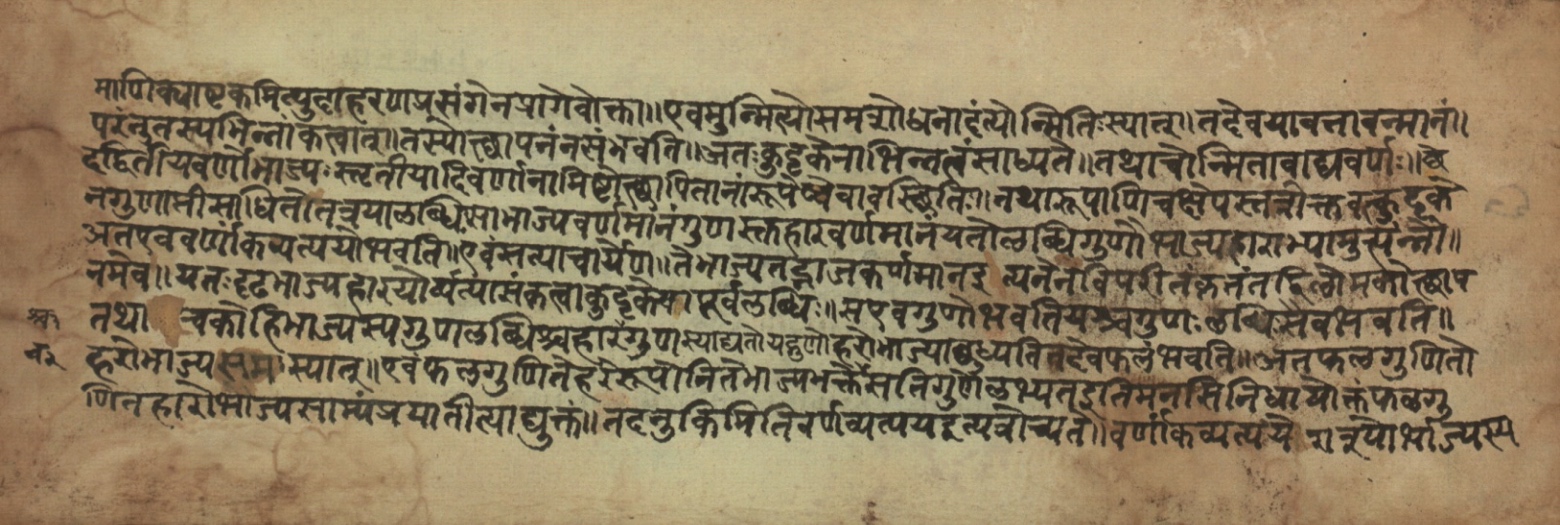 माणिक्याष्टकमित्युदाहरणप्रसंगेनप्रागेवोक्ता॥एवमुन्मित्योःसमशोधनादंत्योन्मितिःस्यात्॥तदैवयावत्तावन्मानं॥
परंतुतस्यभिन्नांकत्वात्॥तस्योत्थापनंनसंभवति॥अतःकुट्टकेनाभिन्नत्वंसाध्यते॥तथाचोन्मितावाद्यवर्णः॥छे
दद्वितीयवर्णोभाज्यःस्तृतीयादिवर्णानामिष्टोत्थापितानांरूपेष्वेवावस्थितिः॥तथारूपाणिचक्षेपस्ततोक्तवत्कुट्टके
नगुणाप्तीसाधितेतत्रयालब्धिःसाभाज्यवर्णमानंगुणस्तहारवर्णमानंयतोलब्धिगुणौभाज्यहाराभ्यामुत्पन्नौ॥
अतएववर्णांकव्यत्ययोभवति॥एवंसत्याचार्येण॥तेभाज्यतद्भाजकवर्णमानेइत्यनेनविपरीतक्रमंतद्विलोमकोत्थाप
नमेव॥यतःदृढभाज्यहारयोर्व्यत्यासंकृत्वाकुट्टकेयापूर्वलब्धिः॥सएवगुणोभवतियश्चगुणःलब्धिःसैवभवति॥
तथा चकोहिभाज्यस्यगुणालब्धिश्चहारंगुणस्याद्यतोयद्गुणोहरोभाज्याच्छुध्यतितदेवफलंभवति॥अतःफलगुणितो
हरोभाज्यसमःस्यात्॥एवंफलगुणितेहरेरूपोनितेभाज्यभक्तेसतिगुणोलभ्यतइतिमनसिनिधायोक्तंफलगु
णितहारोभाज्यसाम्यंप्रयातीत्याद्युक्तं॥तदनुकिमितिवर्णव्यत्ययइत्यत्रोच्यते॥वर्णांकव्यत्यये भाज्यस्य